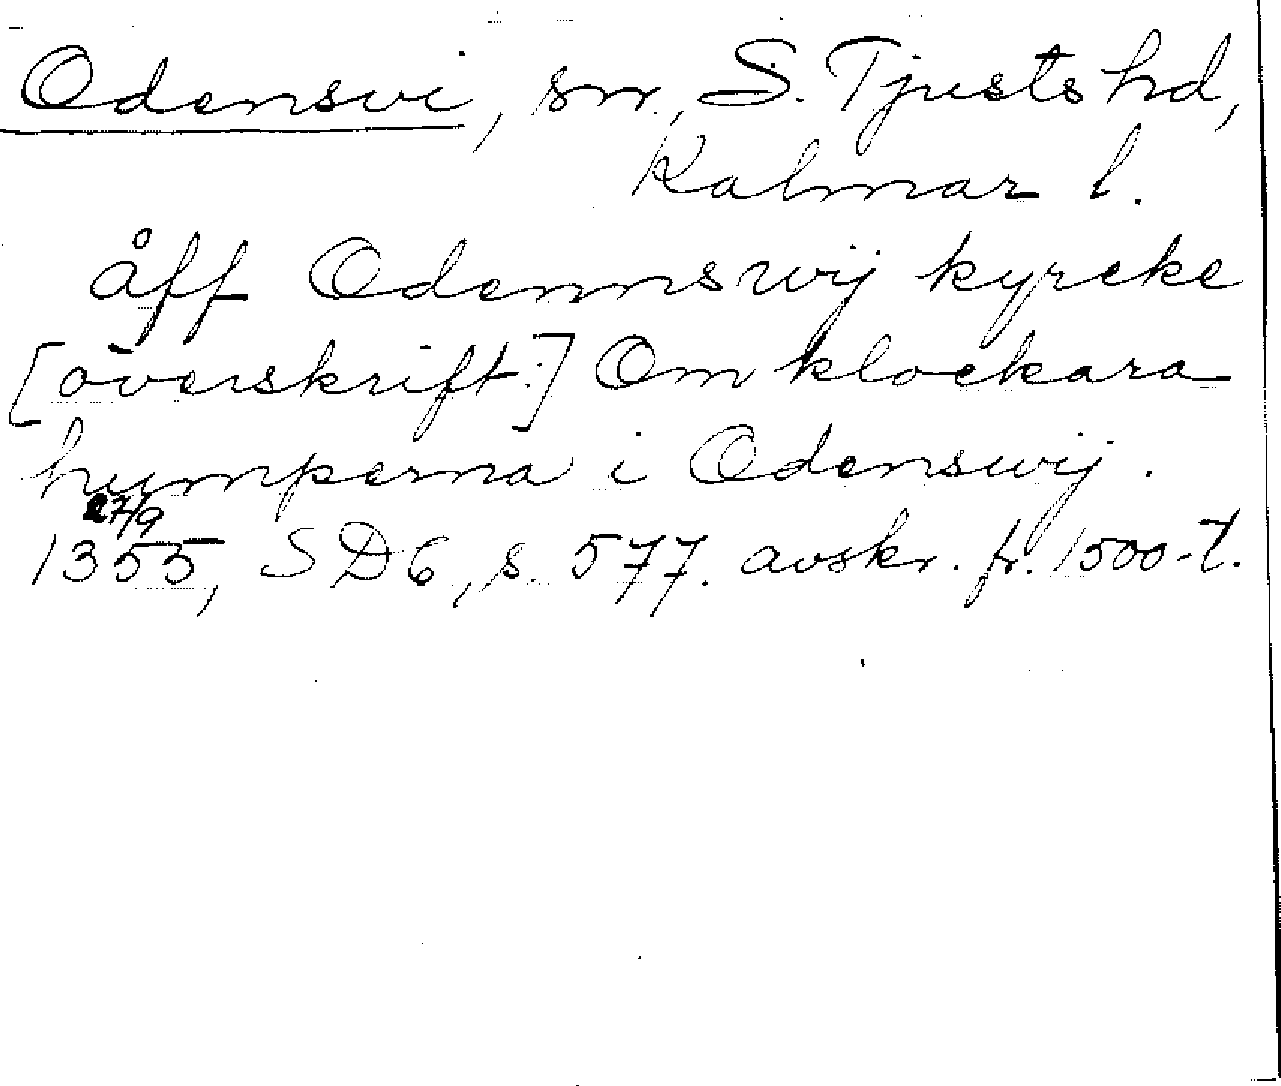 Odensvi, sn, S. Tjusts hd,
Kalmar l.
åff Odennswij kyrcke
[överskrift:] Om klockara
humperna i Odenswij.
27/9
1355, SD6, s. 577. avskr. fr. 1500-t.